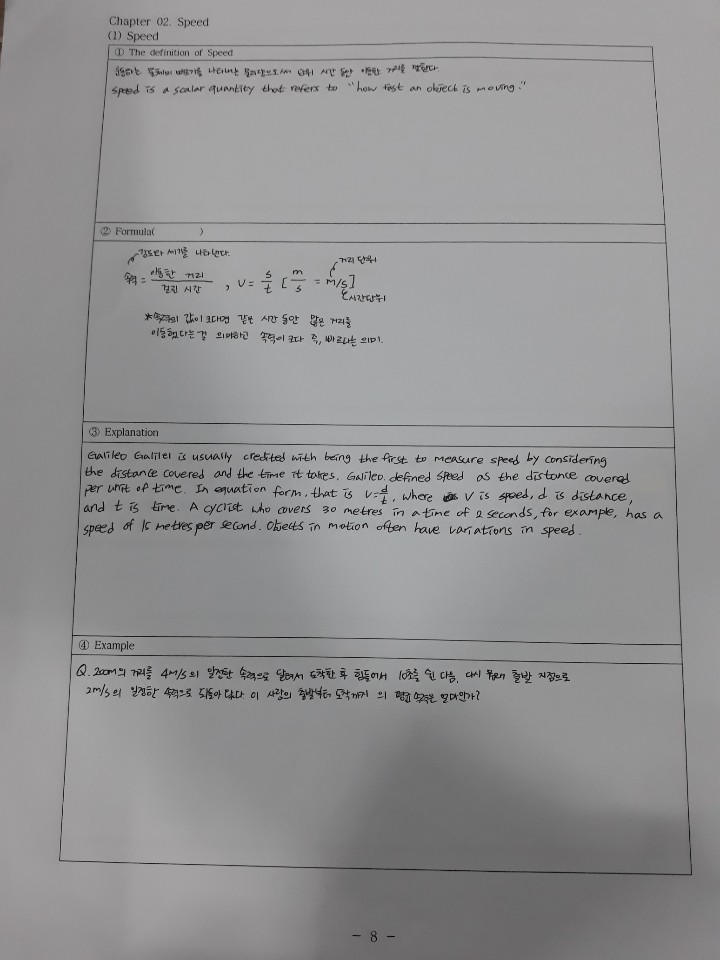 Chapter 02. Speed
(1) Speed
① The definition of Speed
운동하는 물체의 빠르기를 나타내는 물리량으로써 단위 시간 동안 이동한 거리를 말한다.
speed is a scalar quantity that refers to "how fast an object is moving."
② Formula( )
강도와 세기를 나타낸다.
거리 단위
속력 = 이동한 거리 / 걸린 시간 , V = s/t [ m/s = m/s ]
시간단위
*속력의 값이 크다면 같은 시간 동안 많은 거리를
이동했다는 걸 의미하고 속력이 크다 즉, 빠르다는 의미.
③ Explanation
Galileo Galilei is usually credited with being the first to measure speed by considering
the distance covered and the time it takes. Galileo defined speed as the distance covered
per unit of time. In equation form, that is v=d/t, where v is speed, d is distance,
and t is time. A cyclist who covers 30 metres in a time of 2 seconds, for example, has a
speed of 15 metres per second. Objects in motion often have variations in speed.
④ Example
Q. 200m의 거리를 4m/s의 일정한 속력으로 달려서 도착한 후 힘들어서 10초를 쉰 다음, 다시 출발 지점으로
2m/s의 일정한 속력으로 되돌아 갔다. 이 사람의 출발부터 도착까지의 평균 속력은 얼마인가?
- 8 -